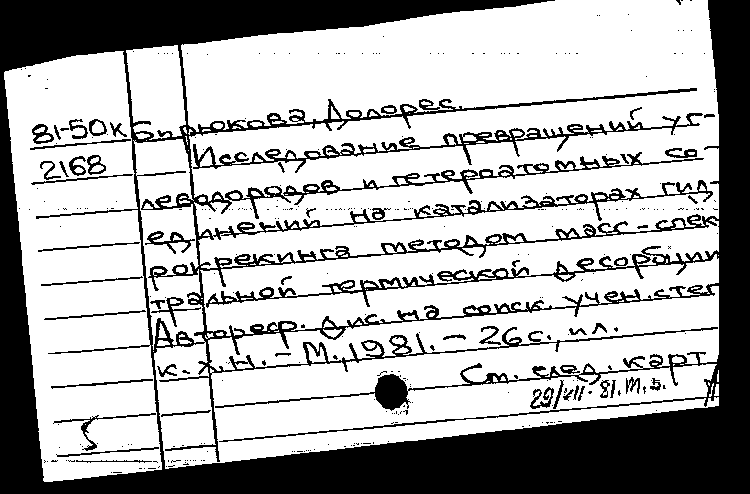 81-50к Бирюкова, Долорес.
2168 Исследование превращений уг-
леводородов и гетероатомных со-
единений на катализаторах гид-
рокрекинга методом масс-спек
тральной термической десорбции
Автореф. дис. на соиск. учен. степ
к. х. н. - М., 1981. - 26 с., ил.
См. след. карт
29/VII-81. М.